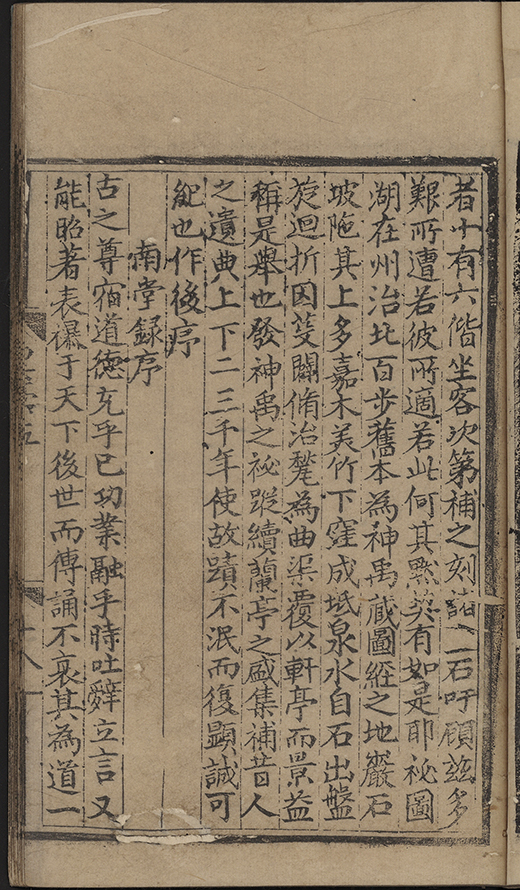 者十有六偕坐客次第補之刻諸一石吁顧玆多
艱所遭若彼所適若此何其異有如是耶祕圖
湖在州治北百步舊本為神禹蔵圖經之地巖石
坡陁其上多嘉木美竹下窪成坻泉水自石出盤
旋迴折因芟闢脩治甃為曲渠覆以軒亭而景益
稱是舉也發神禹之祕蹤續蘭亭之盛集補昔人
之遺典上下二三千年使故蹟不泯而復顯誠可
紀也作後序
南堂録序
古之尊宿道德充乎己功業融乎時吐辤立言又
能昭著表襮于天下後世而傳誦不衰其為道一